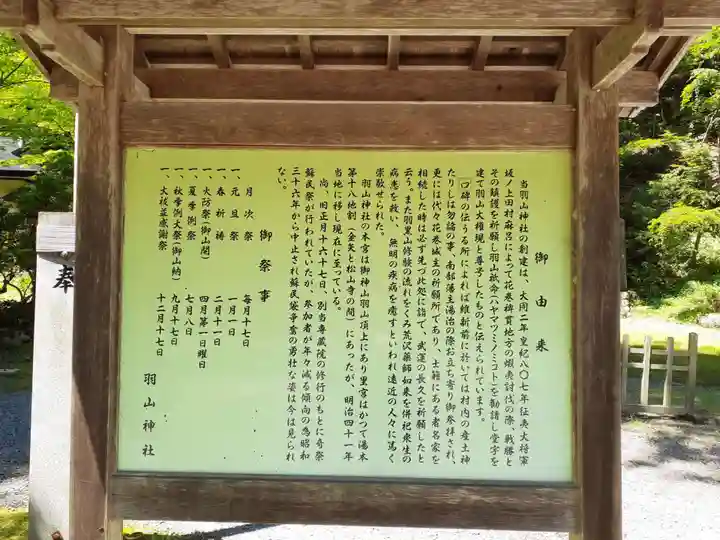 御由来
当羽山神社の創建は、大同二年皇紀八〇七年征夷大将軍
坂ノ上田村麻呂によって花巻稗貫地方の蝦夷討伐の際、戦勝と
その鎮護を祈願し羽山祇命(ハヤマツミノミコト)を勧請し堂宇を
建て羽山大権現と尊号したものと伝えられています。
口碑の伝うる所によれば維新前に於いては村内の産土神
たりしは勿論の事、南部藩主湯治の際お立ち寄り御参拝され、
更には代々花巻城主の祈願所であり、士籍にある者名家を
相続した時は必ず先づ此処に詣で、武運の長久を祈願したと
云う。また羽黒山修験の流れをくみ荒沢薬師如来を併祀衆生の
病患を救い、無明の疾病を癒すといわれ遠近の人々に篤く
崇敬せられた。
羽山神社の本宮は御神山羽山頂上にあり里宮はかつて湯本
第十八地割(金矢と松山寺の間)にあったが、明治四十一年
当地に移し現在に至っている。
尚、旧正月十六十七日、別当専蔵院の修行のもとに奇祭
蘇民祭が行われていたが、参加者が年々減る傾向の為昭和
三十六年から中止され蘇民袋争奪の勇壮な姿は今は見られ
ない。
御祭事
月次祭 毎月十七日
一、元旦祭 一月一日
一、春祈祷 二月十一日
一、火防祭(御山開) 四月第一日曜日
一、夏季例祭 七月八日
一、秋季例大祭(御山納) 九月十七日
一、大祓並感謝祭 十二月十七日
羽山神社
奉